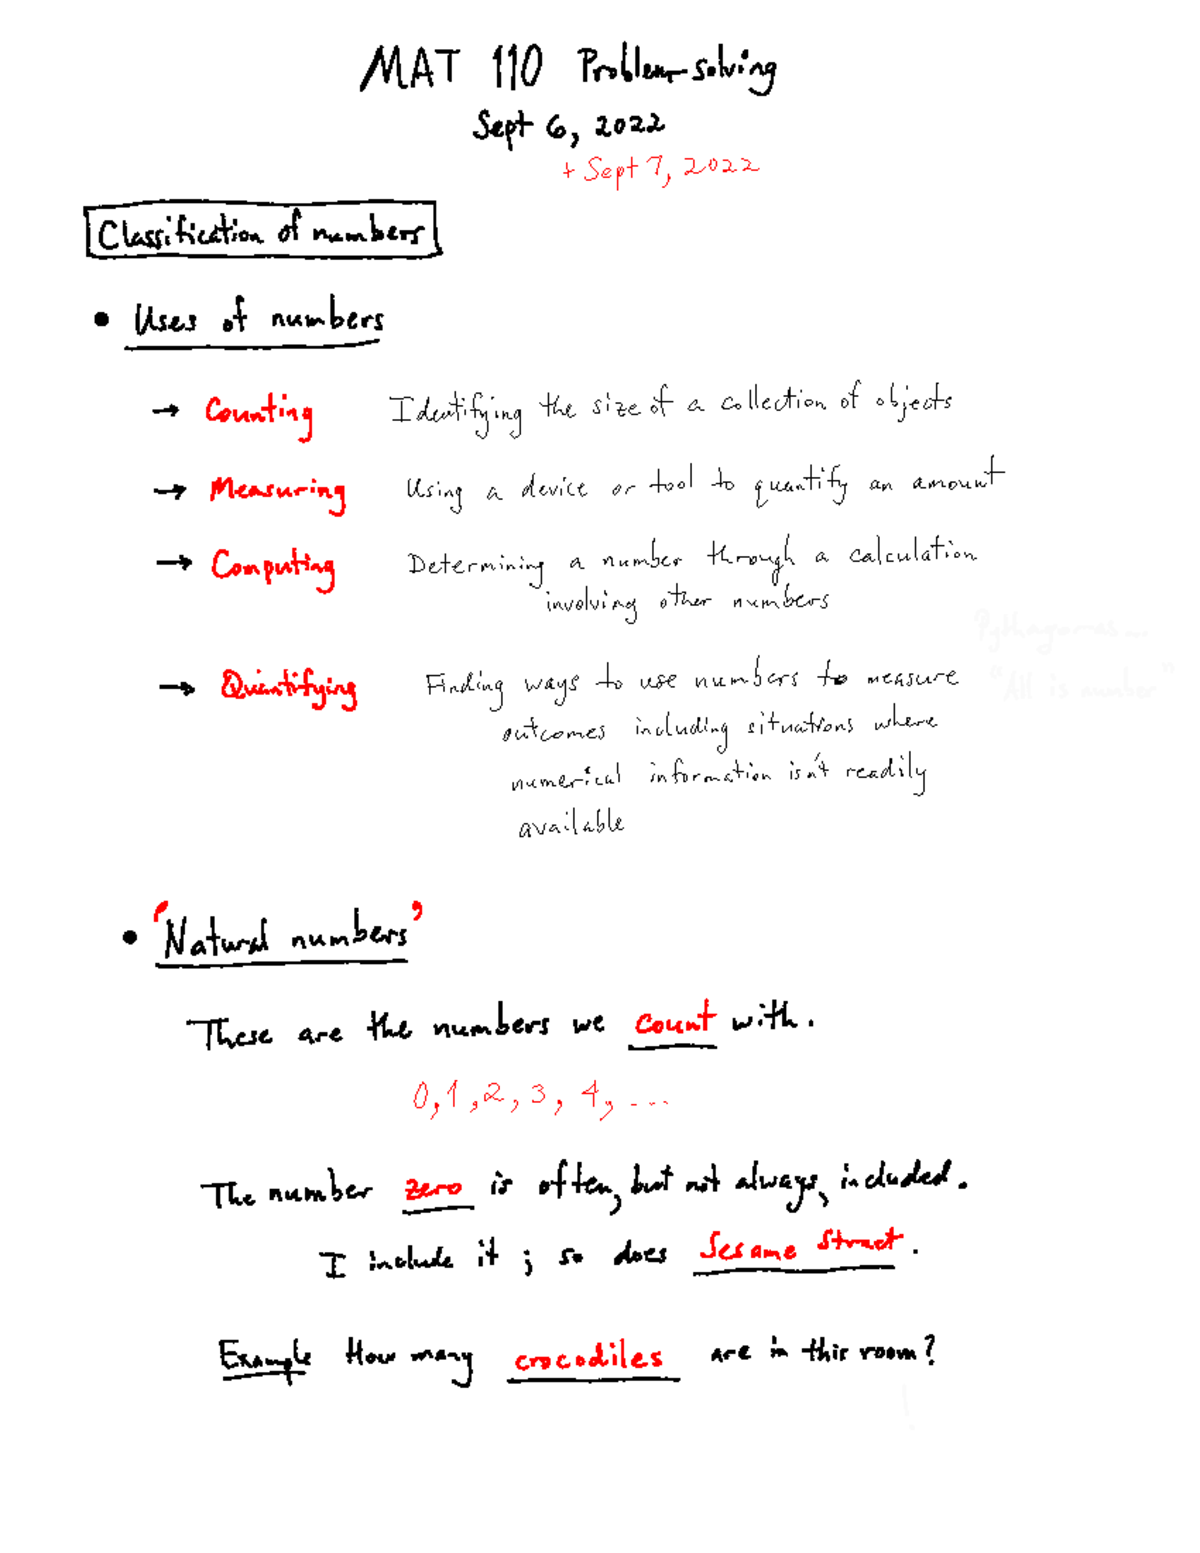 MAT 110 Problem-solving
Sept 6, 2022
+ Sept 7, 2022
Classification of numbers
• Uses of numbers
→ Counting Identifying the size of a collection of objects
→ Measuring Using a device or tool to quantify an amount
→ Computing Determining a number through a calculation
involving other numbers
Pythagoras...
"All is number"
→ Quantifying Finding ways to use numbers to measure
outcomes including situations where
numerical information isn't readily
available
• 'Natural numbers'
These are the numbers we count with.
0, 1, 2, 3, 4, ...
The number zero is often, but not always, included.
I include it; so does Sesame Street.
Example How many crocodiles are in this room?